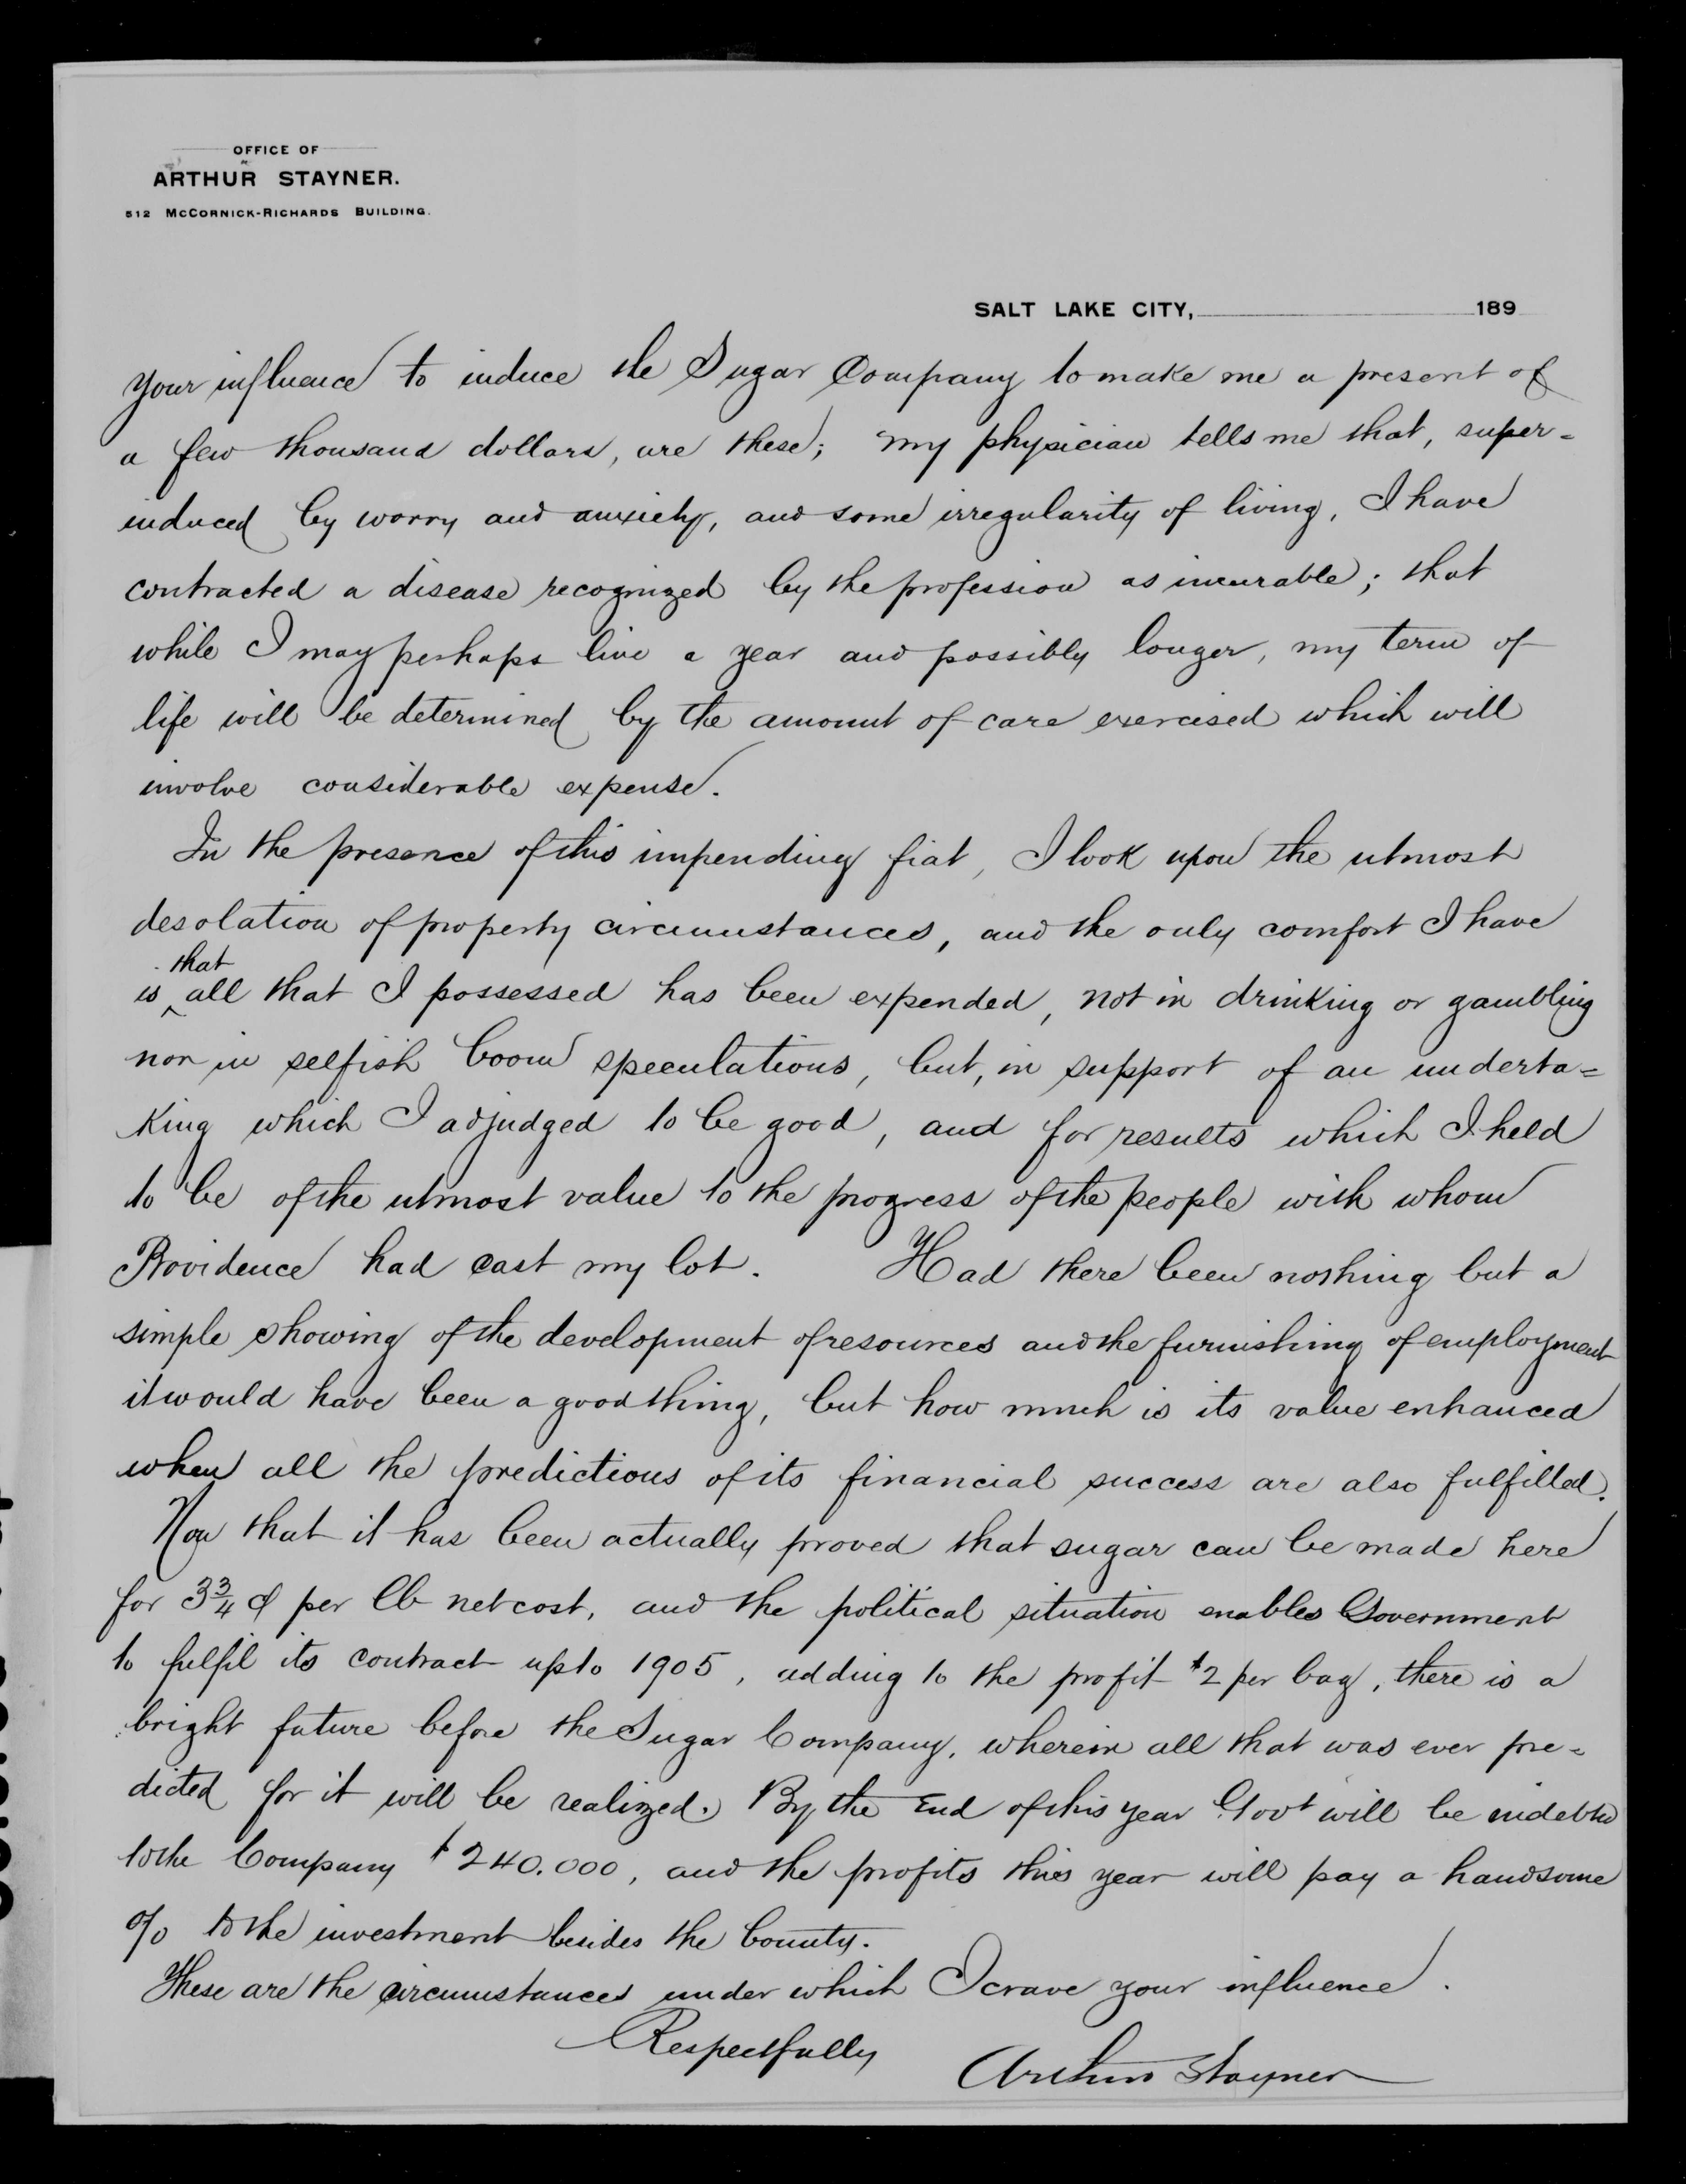 OFFICE OF
ARTHUR STAYNER.
512 McCORNICK-RICHARDS BUILDING.
SALT LAKE CITY, 189
your influence to induce the Sugar Company to make me a present of
a few thousand dollars, are these; my physician tells me that, super=
induced by worry and anxiety, and some irregularity of living, I have
contracted a disease recognized by the profession as incurable; that
while I may perhaps live a year and possibly longer, my term of
life will be determined by the amount of care exercised which will
involve considerable expense.
In the presence of this impending fiat, I look upon the utmost
desolation of property circumstances, and the only comfort I have
that
is ^ all that I possessed has been expended, not in drinking or gambling
nor in selfish boom speculations, but, in support of an underta=
king which I adjudged to be good, and for results which I held
to be of the utmost value to the progress of the people with whom
Providence had cast my lot. Had there been nothing but a
simple showing of the development of resources and the furnishing of employment
it would have been a good thing, but how much is its value enhanced
when all the predictions of its financial success are also fulfilled.
Now that it has been actually proved that sugar can be made here
for 3¾ ¢ per lb net cost, and the political situation enables Government
to fulfil its contract up to 1905, adding to the profit $2 per bag, there is a
bright future before the Sugar Company, wherein all that was ever pre=
dicted for it will be realized. By the End of this year Govt will be indebted
to the Company $240.000, and the profits this year will pay a handsome
% to the investment besides the bounty.
These are the circumstances under which I crave your influence.
Respectfully
Arthur Stayner